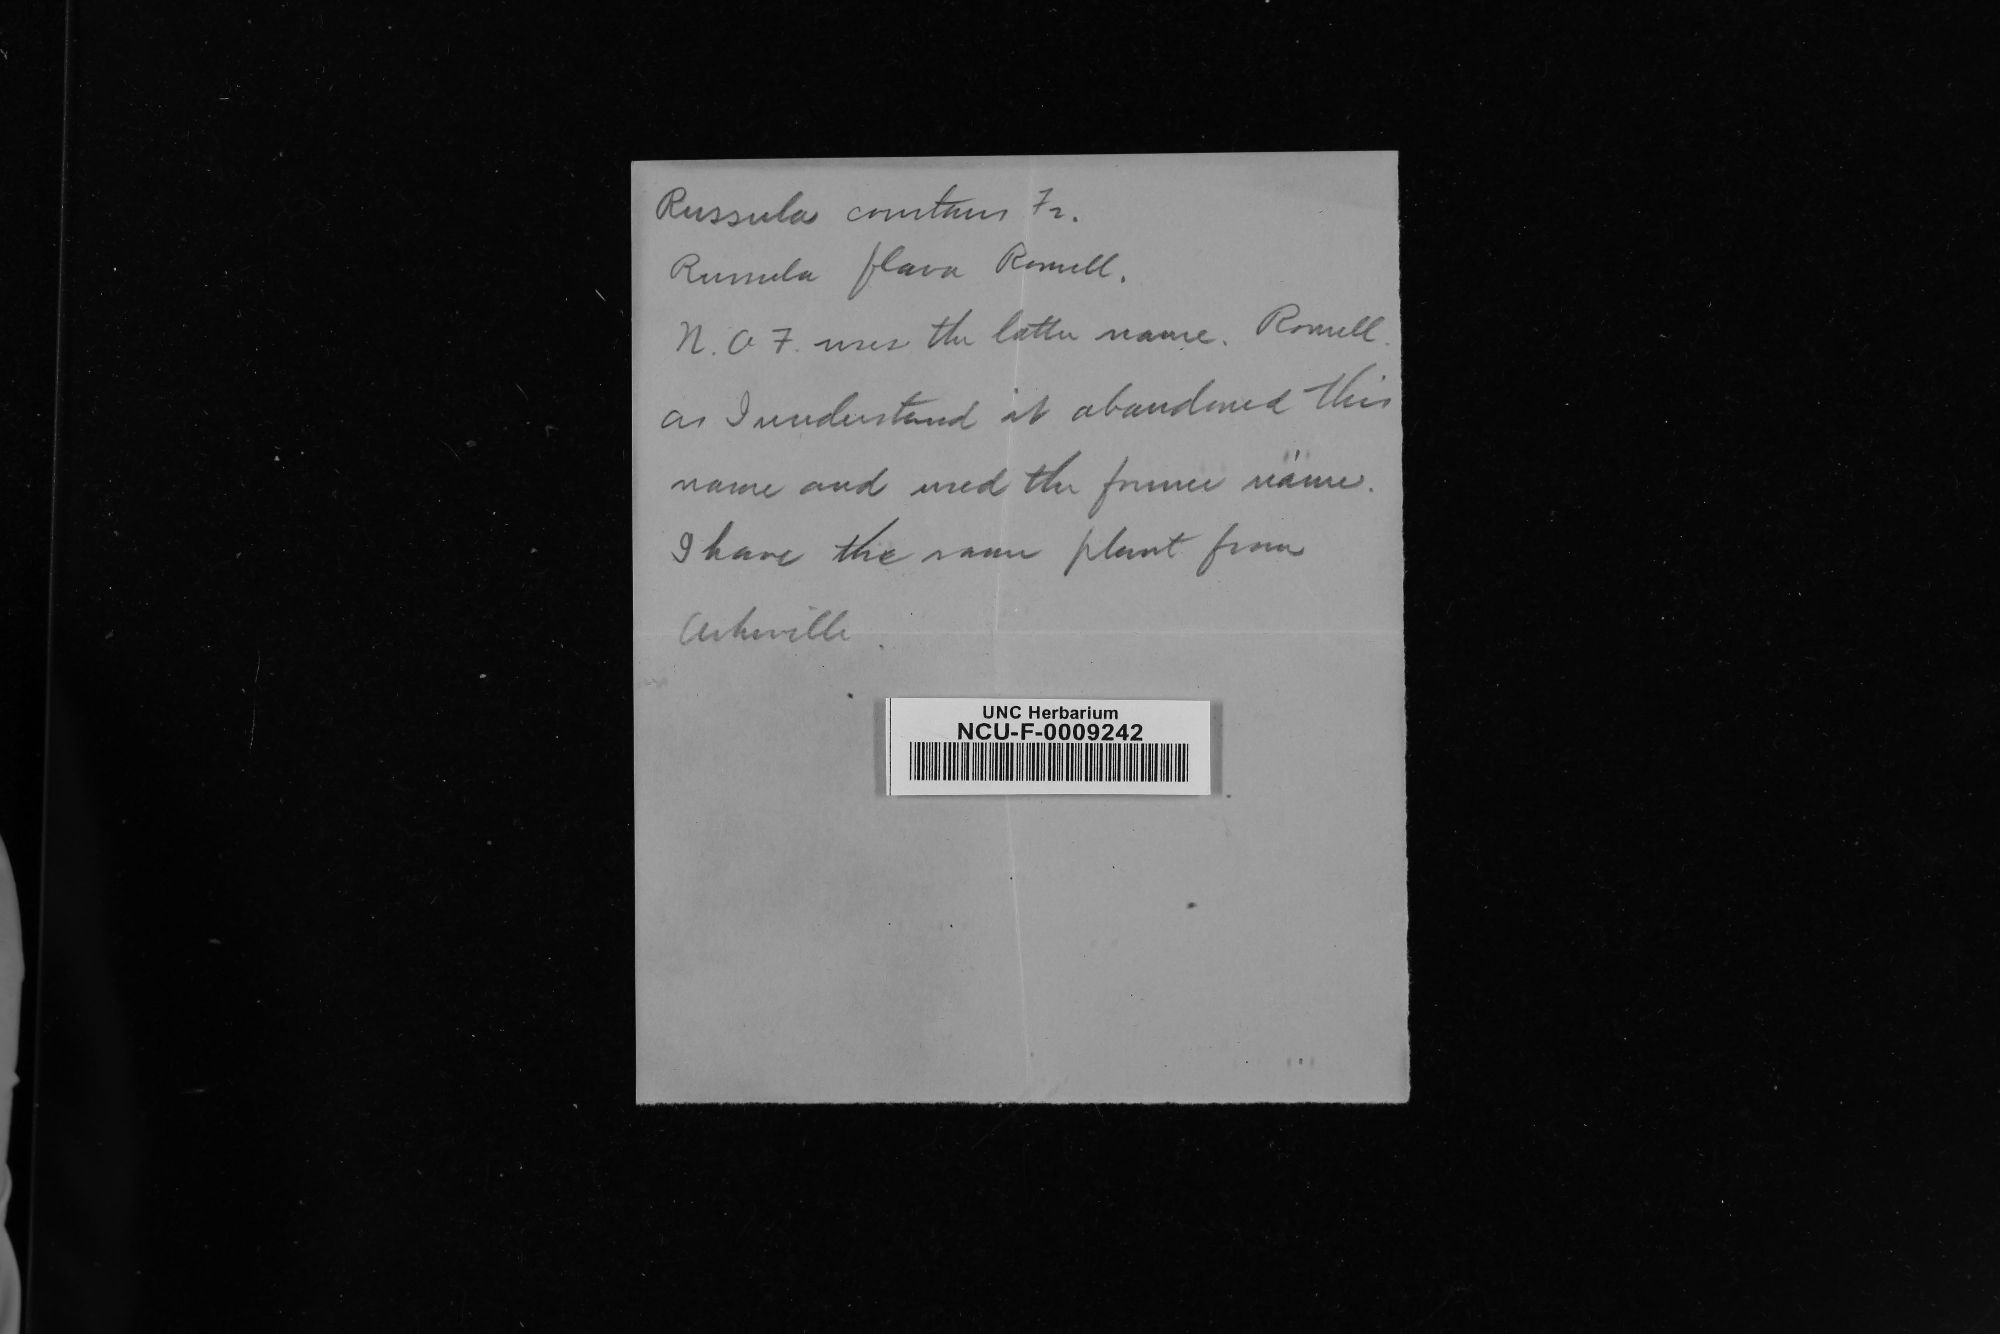 Russula constans Fr.
Russula flava Romell.
N.A.F. uses the latter name. Romell.
as I understand it abandoned this
name and used the former name.
I have the same plant from
Asheville.
UNC Herbarium
NCU-F-0009242